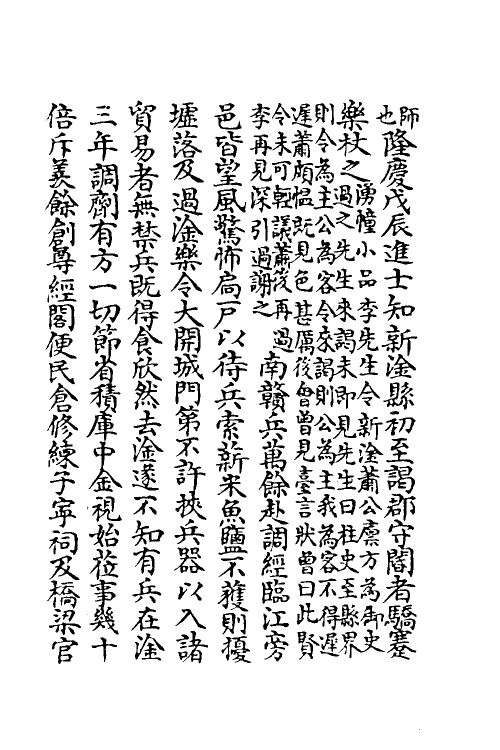 師
也
隆慶戊辰進士知新淦縣初至謁郡守閽者驕蹇
樂杖之
湧幢小品李先生令新淦蕭公廪方為御史
過之先生來謁未即見先生曰柱史至縣界
則令為主公為客令來謁則公為主我為客不得遲
遲蕭頗慍既見色甚厲後曾曾見臺言狀曾曰此賢
令未可輕議蕭後再過
李再見深引過謝之
南贛兵萬餘赴調經臨江旁
邑皆望風驚怖扃戸以待兵索薪米魚鹽不獲則擾
墟落及過淦樂令大開城門第不許挾兵器以入諸
貿易者無禁兵既得食欣然去淦遂不知有兵在淦
三年調劑有方一切節省積庫中金視始莅事幾十
倍斥羨餘創尊經閣便民倉修練子寧祠及橋梁官